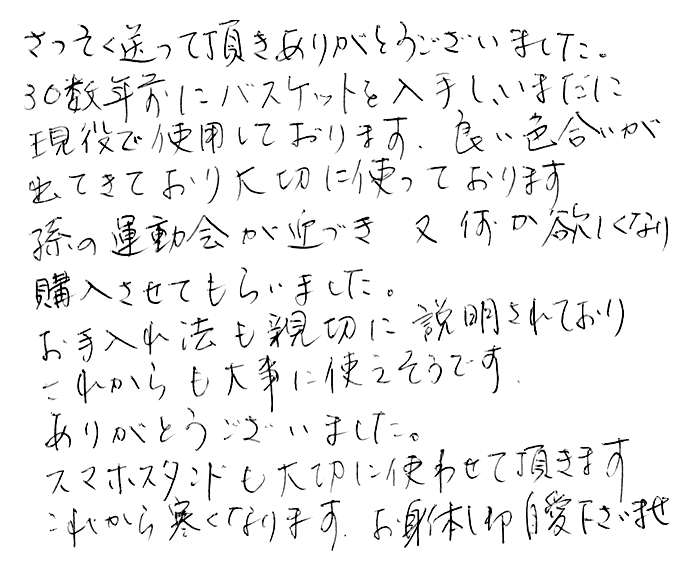 さっそく送って頂きありがとうございました。
30数年前にバスケットを入手し、いまだに
現役で使用しております。良い色合いが
出てきており大切に使っております
孫の運動会が近づき 又 何か欲しくなり
購入させてもらいました。
お手入れ法も親切に説明されており
これからも大事に使えそうです。
ありがとうございました。
スマホスタンドも大切に使わせて頂きます
これから寒くなります。お身体 御自愛下さいませ